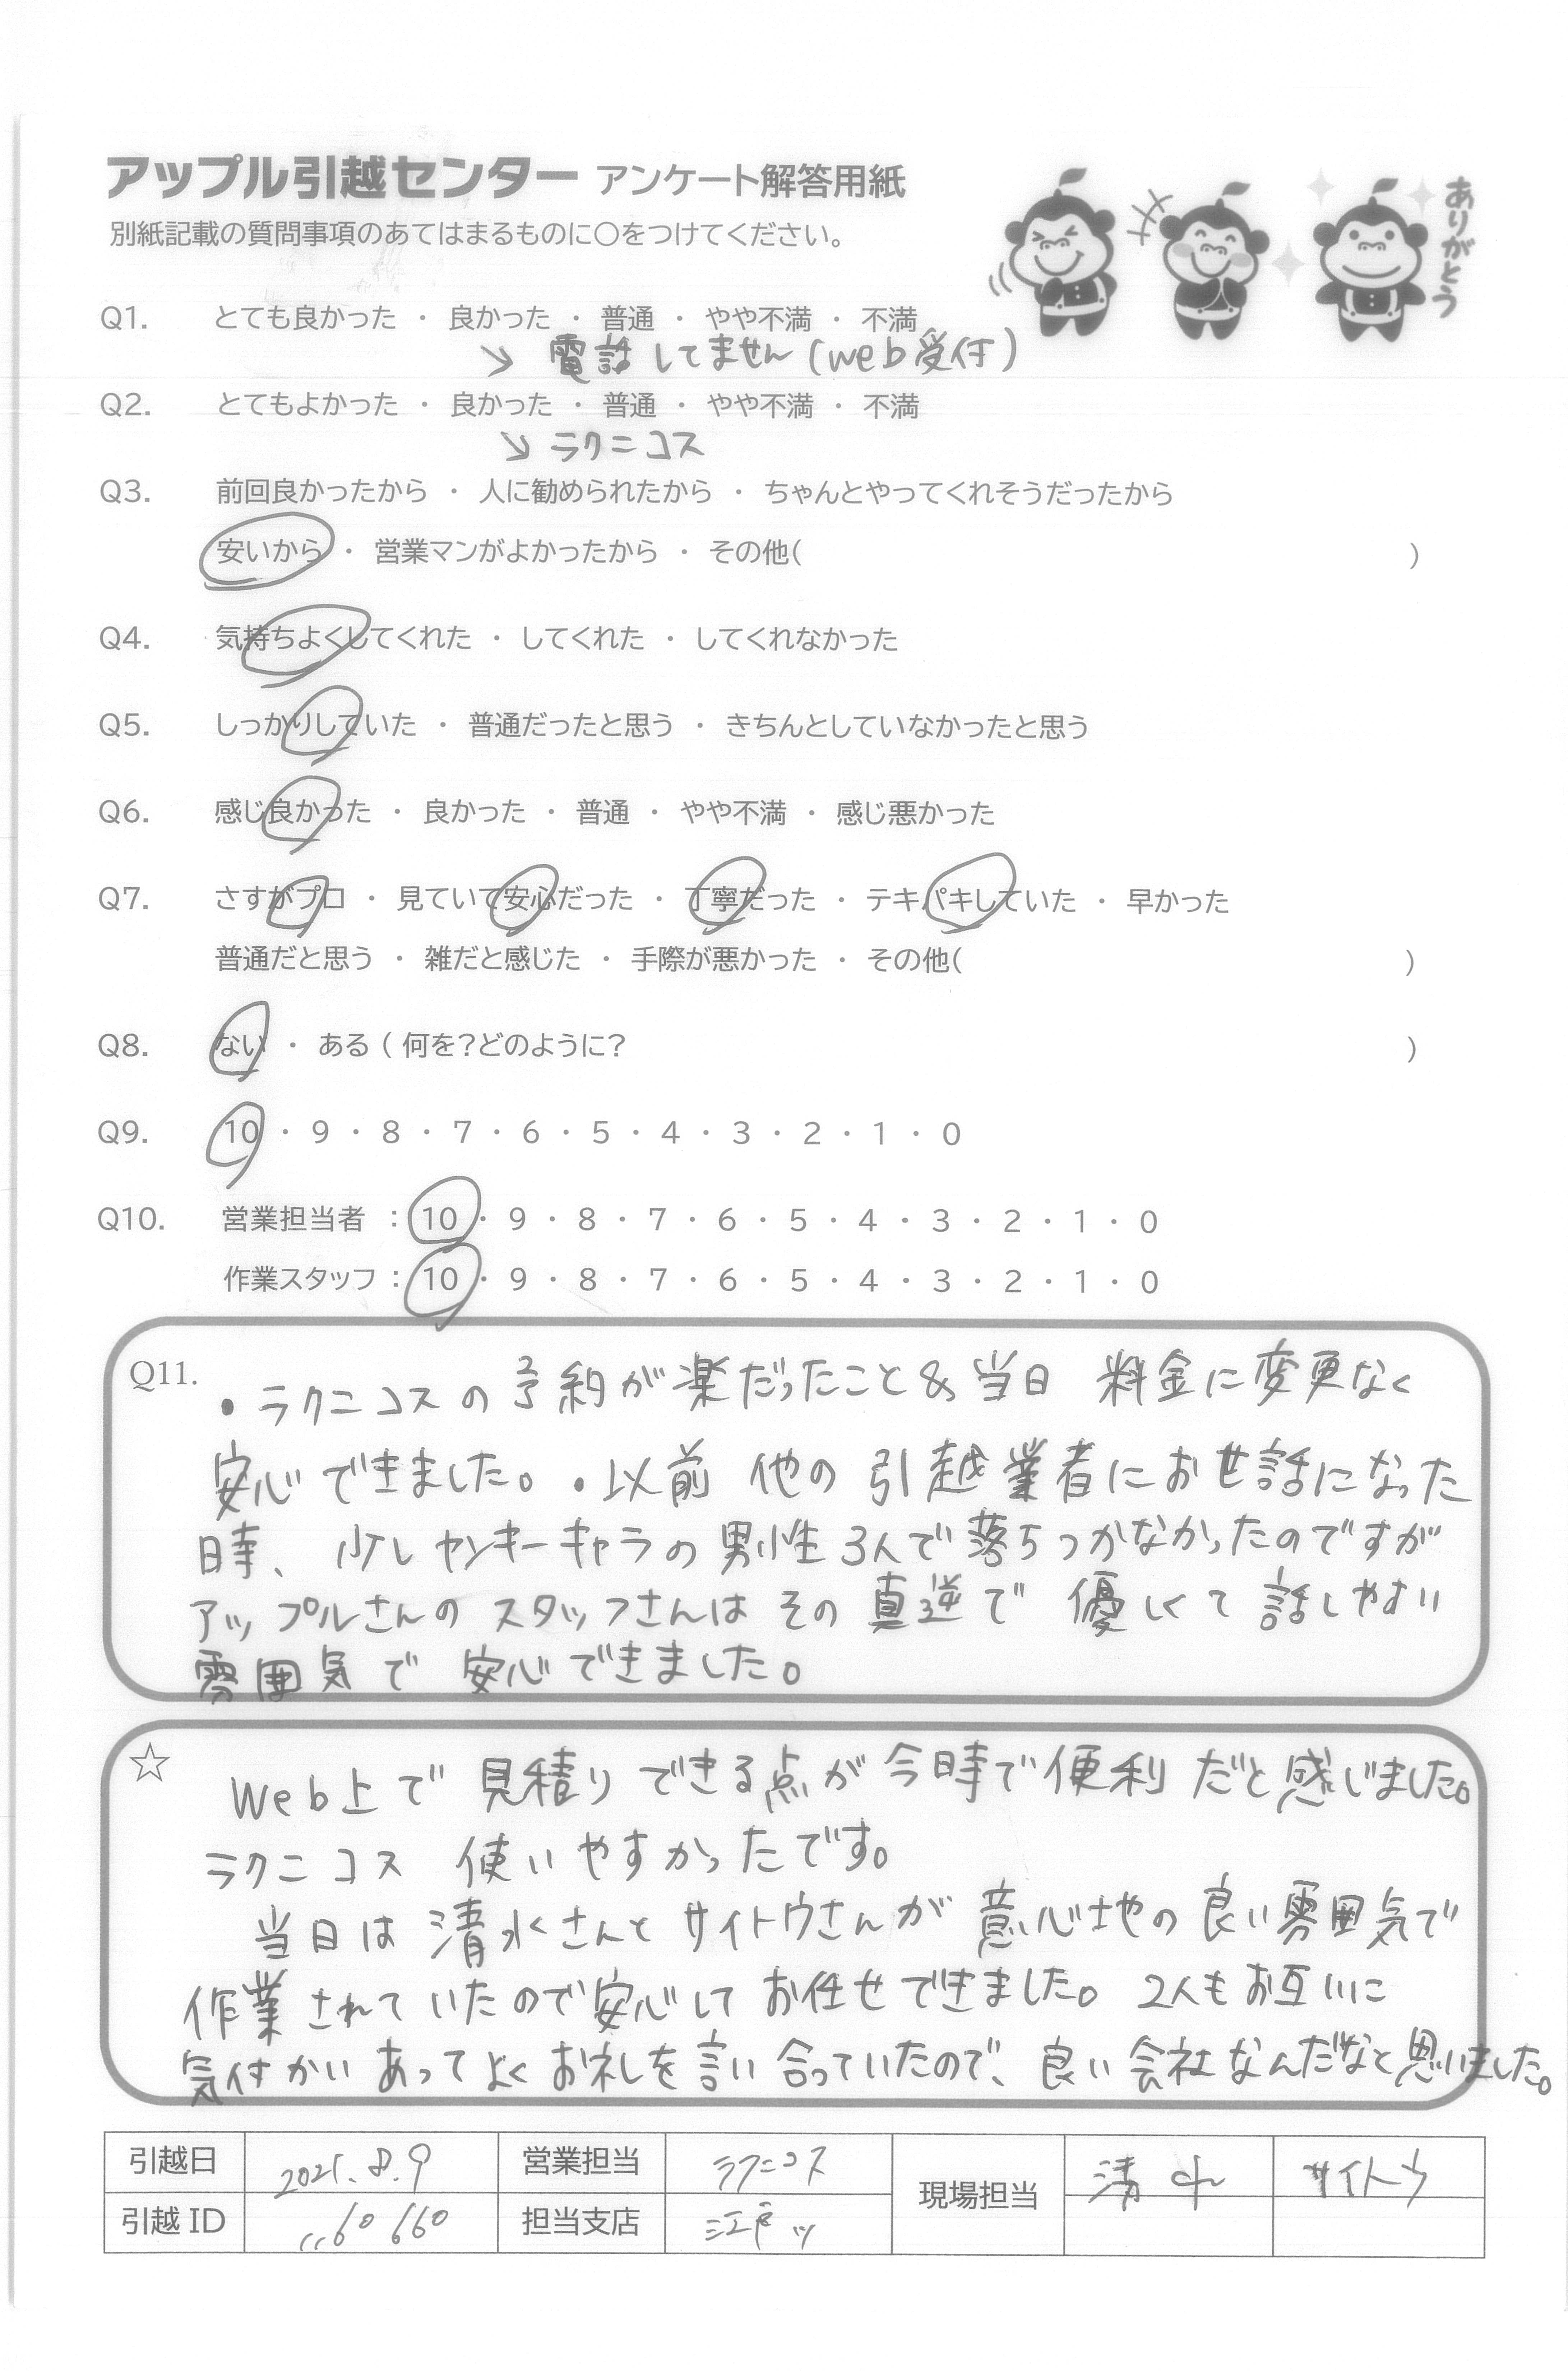 アップル引越センター アンケート解答用紙
別紙記載の質問事項のあてはまるものに○をつけてください。
ありがとう
Q1. とても良かった ・ 良かった ・ 普通 ・ やや不満 ・ 不満
↘ 電話してません(web受付)
Q2. とてもよかった ・ 良かった ・ 普通 ・ やや不満 ・ 不満
↘ ラクニコス
Q3. 前回良かったから ・ 人に勧められたから ・ ちゃんとやってくれそうだったから
安いから ・ 営業マンがよかったから ・ その他( )
Q4. 気持ちよくしてくれた ・ してくれた ・ してくれなかった
Q5. しっかりしていた ・ 普通だったと思う ・ きちんとしていなかったと思う
Q6. 感じ良かった ・ 良かった ・ 普通 ・ やや不満 ・ 感じ悪かった
Q7. さすがプロ ・ 見ていて安心だった ・ 丁寧だった ・ テキパキしていた ・ 早かった
普通だと思う ・ 雑だと感じた ・ 手際が悪かった ・ その他( )
Q8. ない ・ ある ( 何を?どのように? )
Q9. 10 ・ 9 ・ 8 ・ 7 ・ 6 ・ 5 ・ 4 ・ 3 ・ 2 ・ 1 ・ 0
Q10. 営業担当者 : 10 ・ 9 ・ 8 ・ 7 ・ 6 ・ 5 ・ 4 ・ 3 ・ 2 ・ 1 ・ 0
作業スタッフ : 10 ・ 9 ・ 8 ・ 7 ・ 6 ・ 5 ・ 4 ・ 3 ・ 2 ・ 1 ・ 0
Q11. ・ラクニコスの予約が楽だったこと&当日 料金に変更なく
安心できました。・以前 他の引越業者にお世話になった
時、少しヤンキーキャラの男性3人で落ちつかなかったのですが
アップルさんのスタッフさんは その真逆で 優しくて 話しやすい
雰囲気で 安心できました。
☆ Web上で 見積りできる点が今時で便利だと感じました。
ラクニコス 使いやすかったです。
当日は 清水さんと サイトウさんが 意心地の良い雰囲気で
作業されていたので安心してお任せできました。2人もお互いに
気付かいあってよくお礼を言い合っていたので、良い会社なんだなと思いました。
引越日 2025.8.9 営業担当 ラクニコス 現場担当 清水 サイトウ
引越 ID 担当支店 江戸ッ